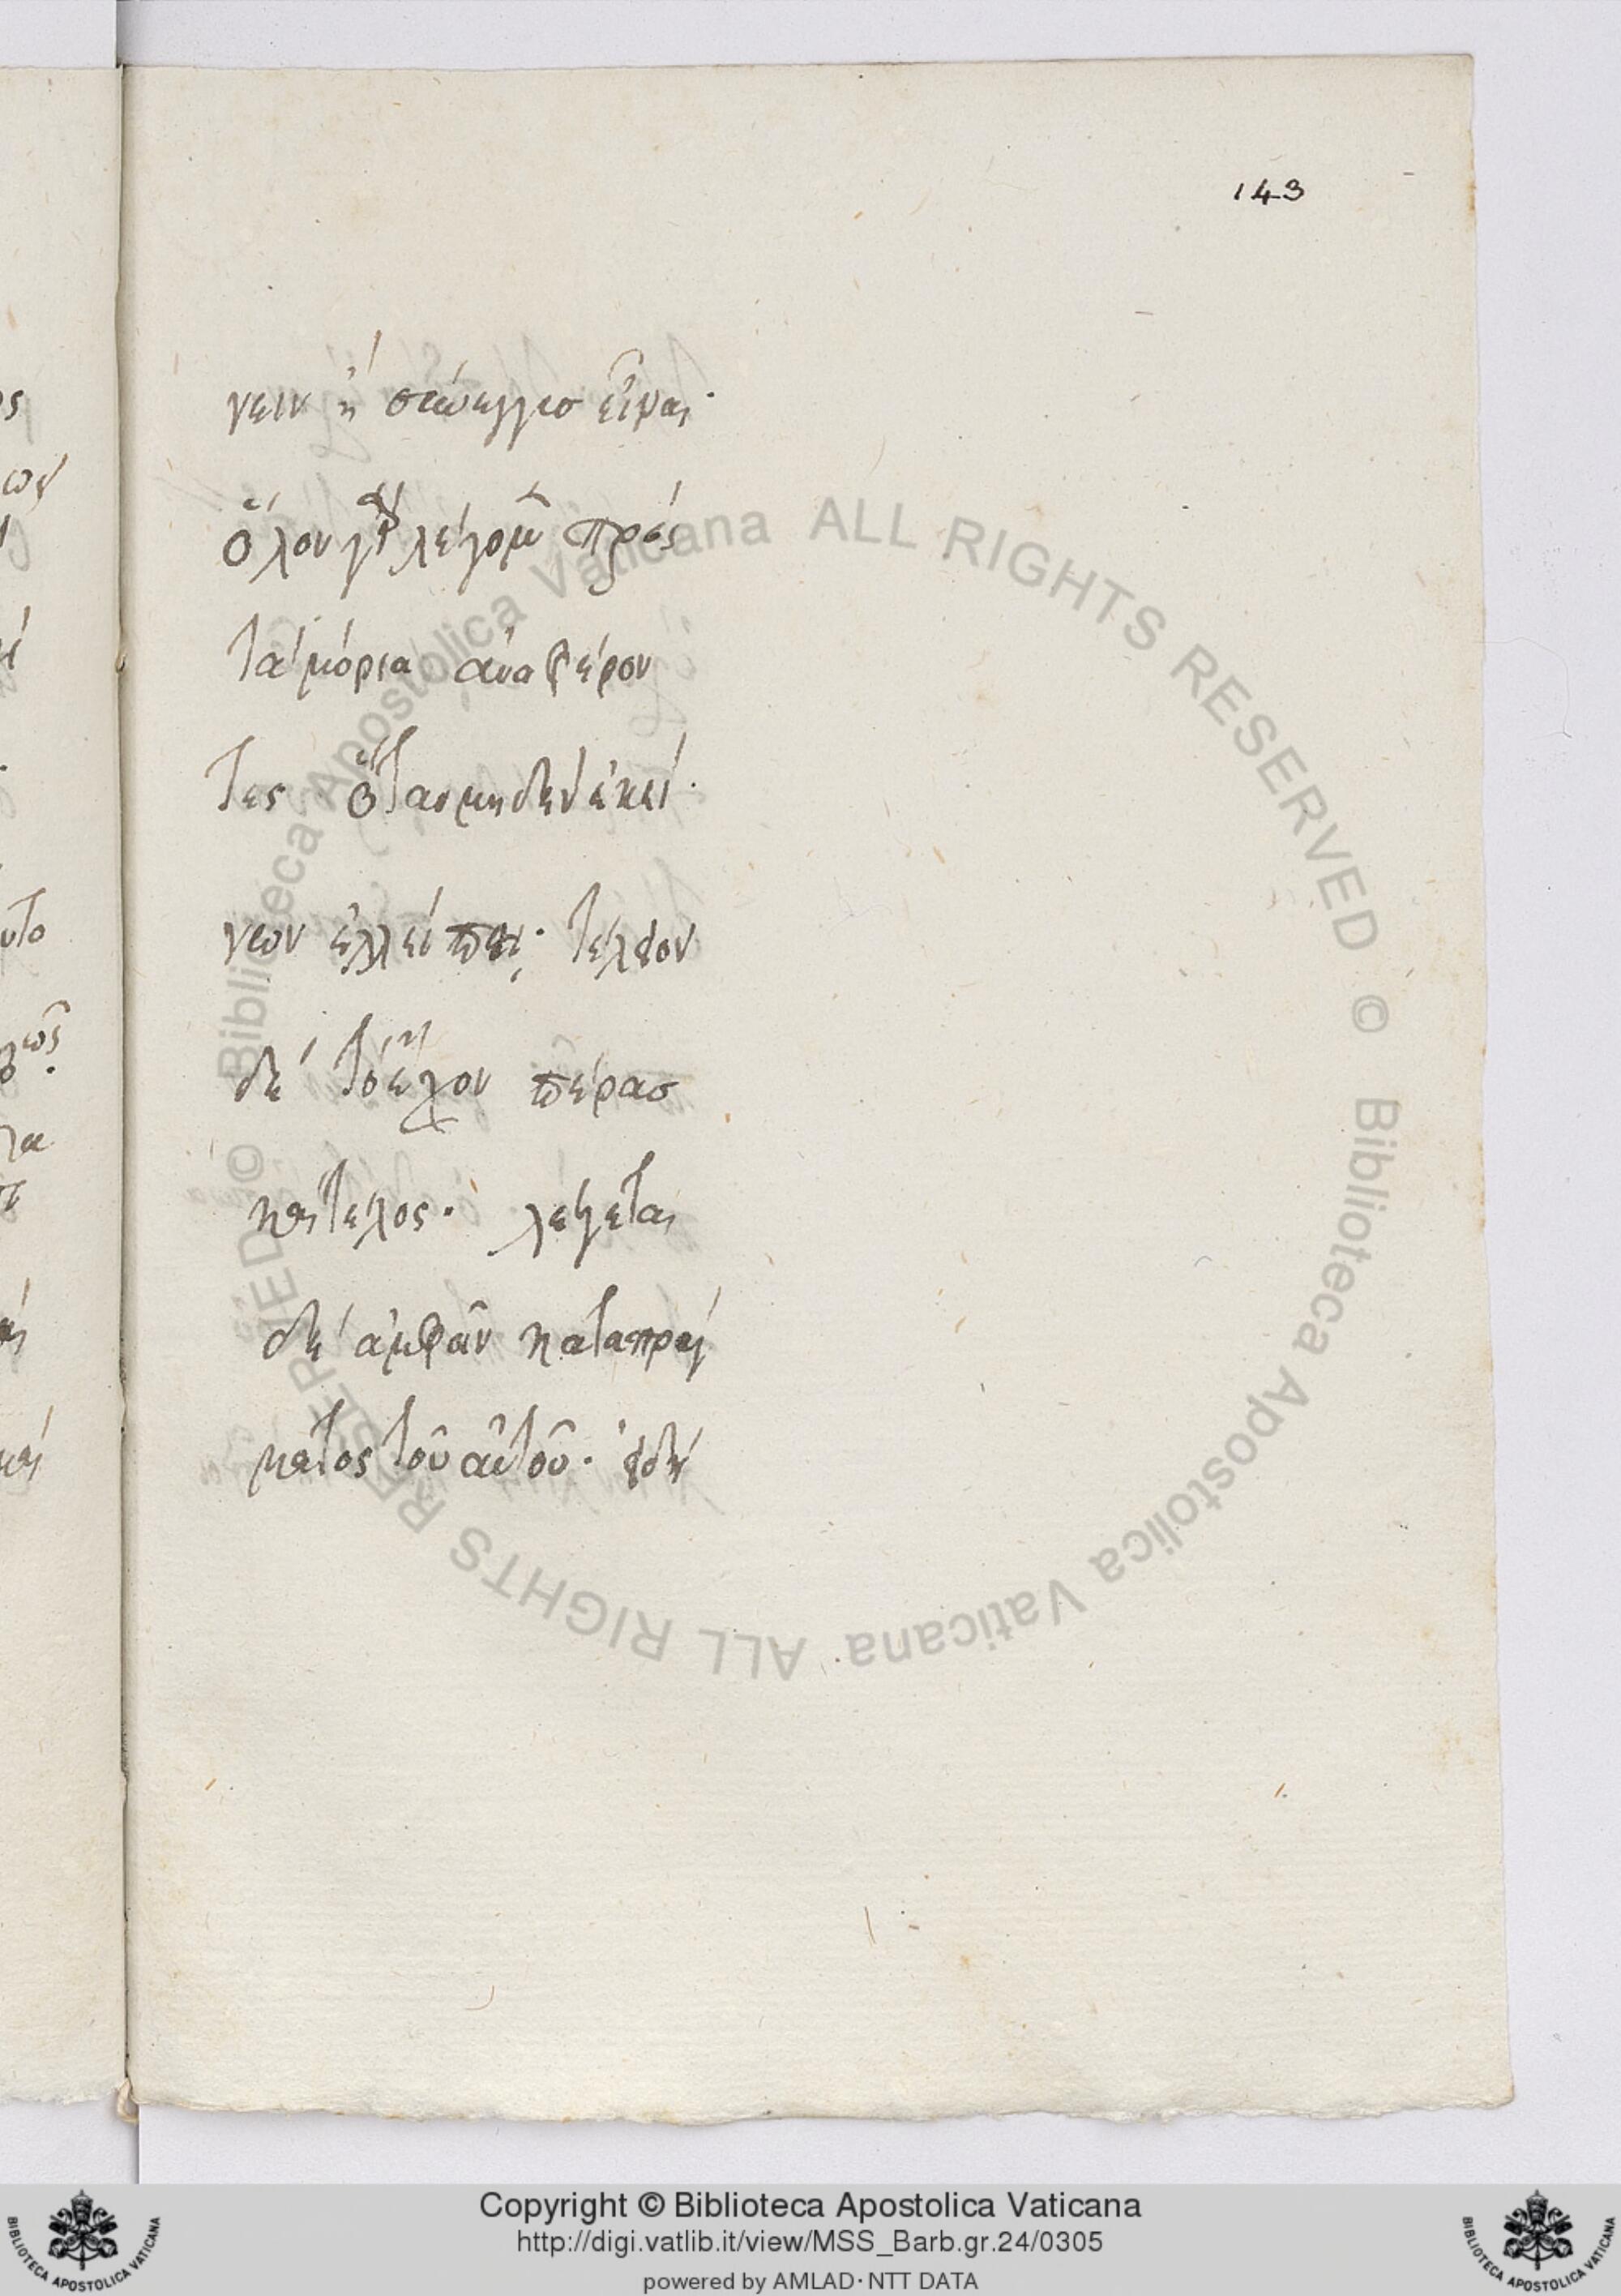 143
γειν ἢ σύνεγγυσ εἶναι·
ὅλον γὰρ λέγομεν πρὸς
τὰ μόρια ἀναφέρον
τες ὅταν μηδὲν ἐκεί
νων ἐλλείπει· τέλειον
δὲ τὸ ἔχον πέρασ
καὶ τέλος· λέγεται
δὲ ἄμφω κατὰ πράγ
ματος τοῦ αὐτοῦ·
ος
υτο
Biblioteca Apostolica Vaticana ALL RIGHTS RESERVED © Biblioteca Apostolica Vaticana ALL RIGHTS RESERVED ©
Copyright © Biblioteca Apostolica Vaticana
http://digi.vatlib.it/view/MSS_Barb.gr.24/0305
powered by AMLAD·NTT DATA
BIBLIOTECA APOSTOLICA VATICANA
BIBLIOTECA APOSTOLICA VATICANA